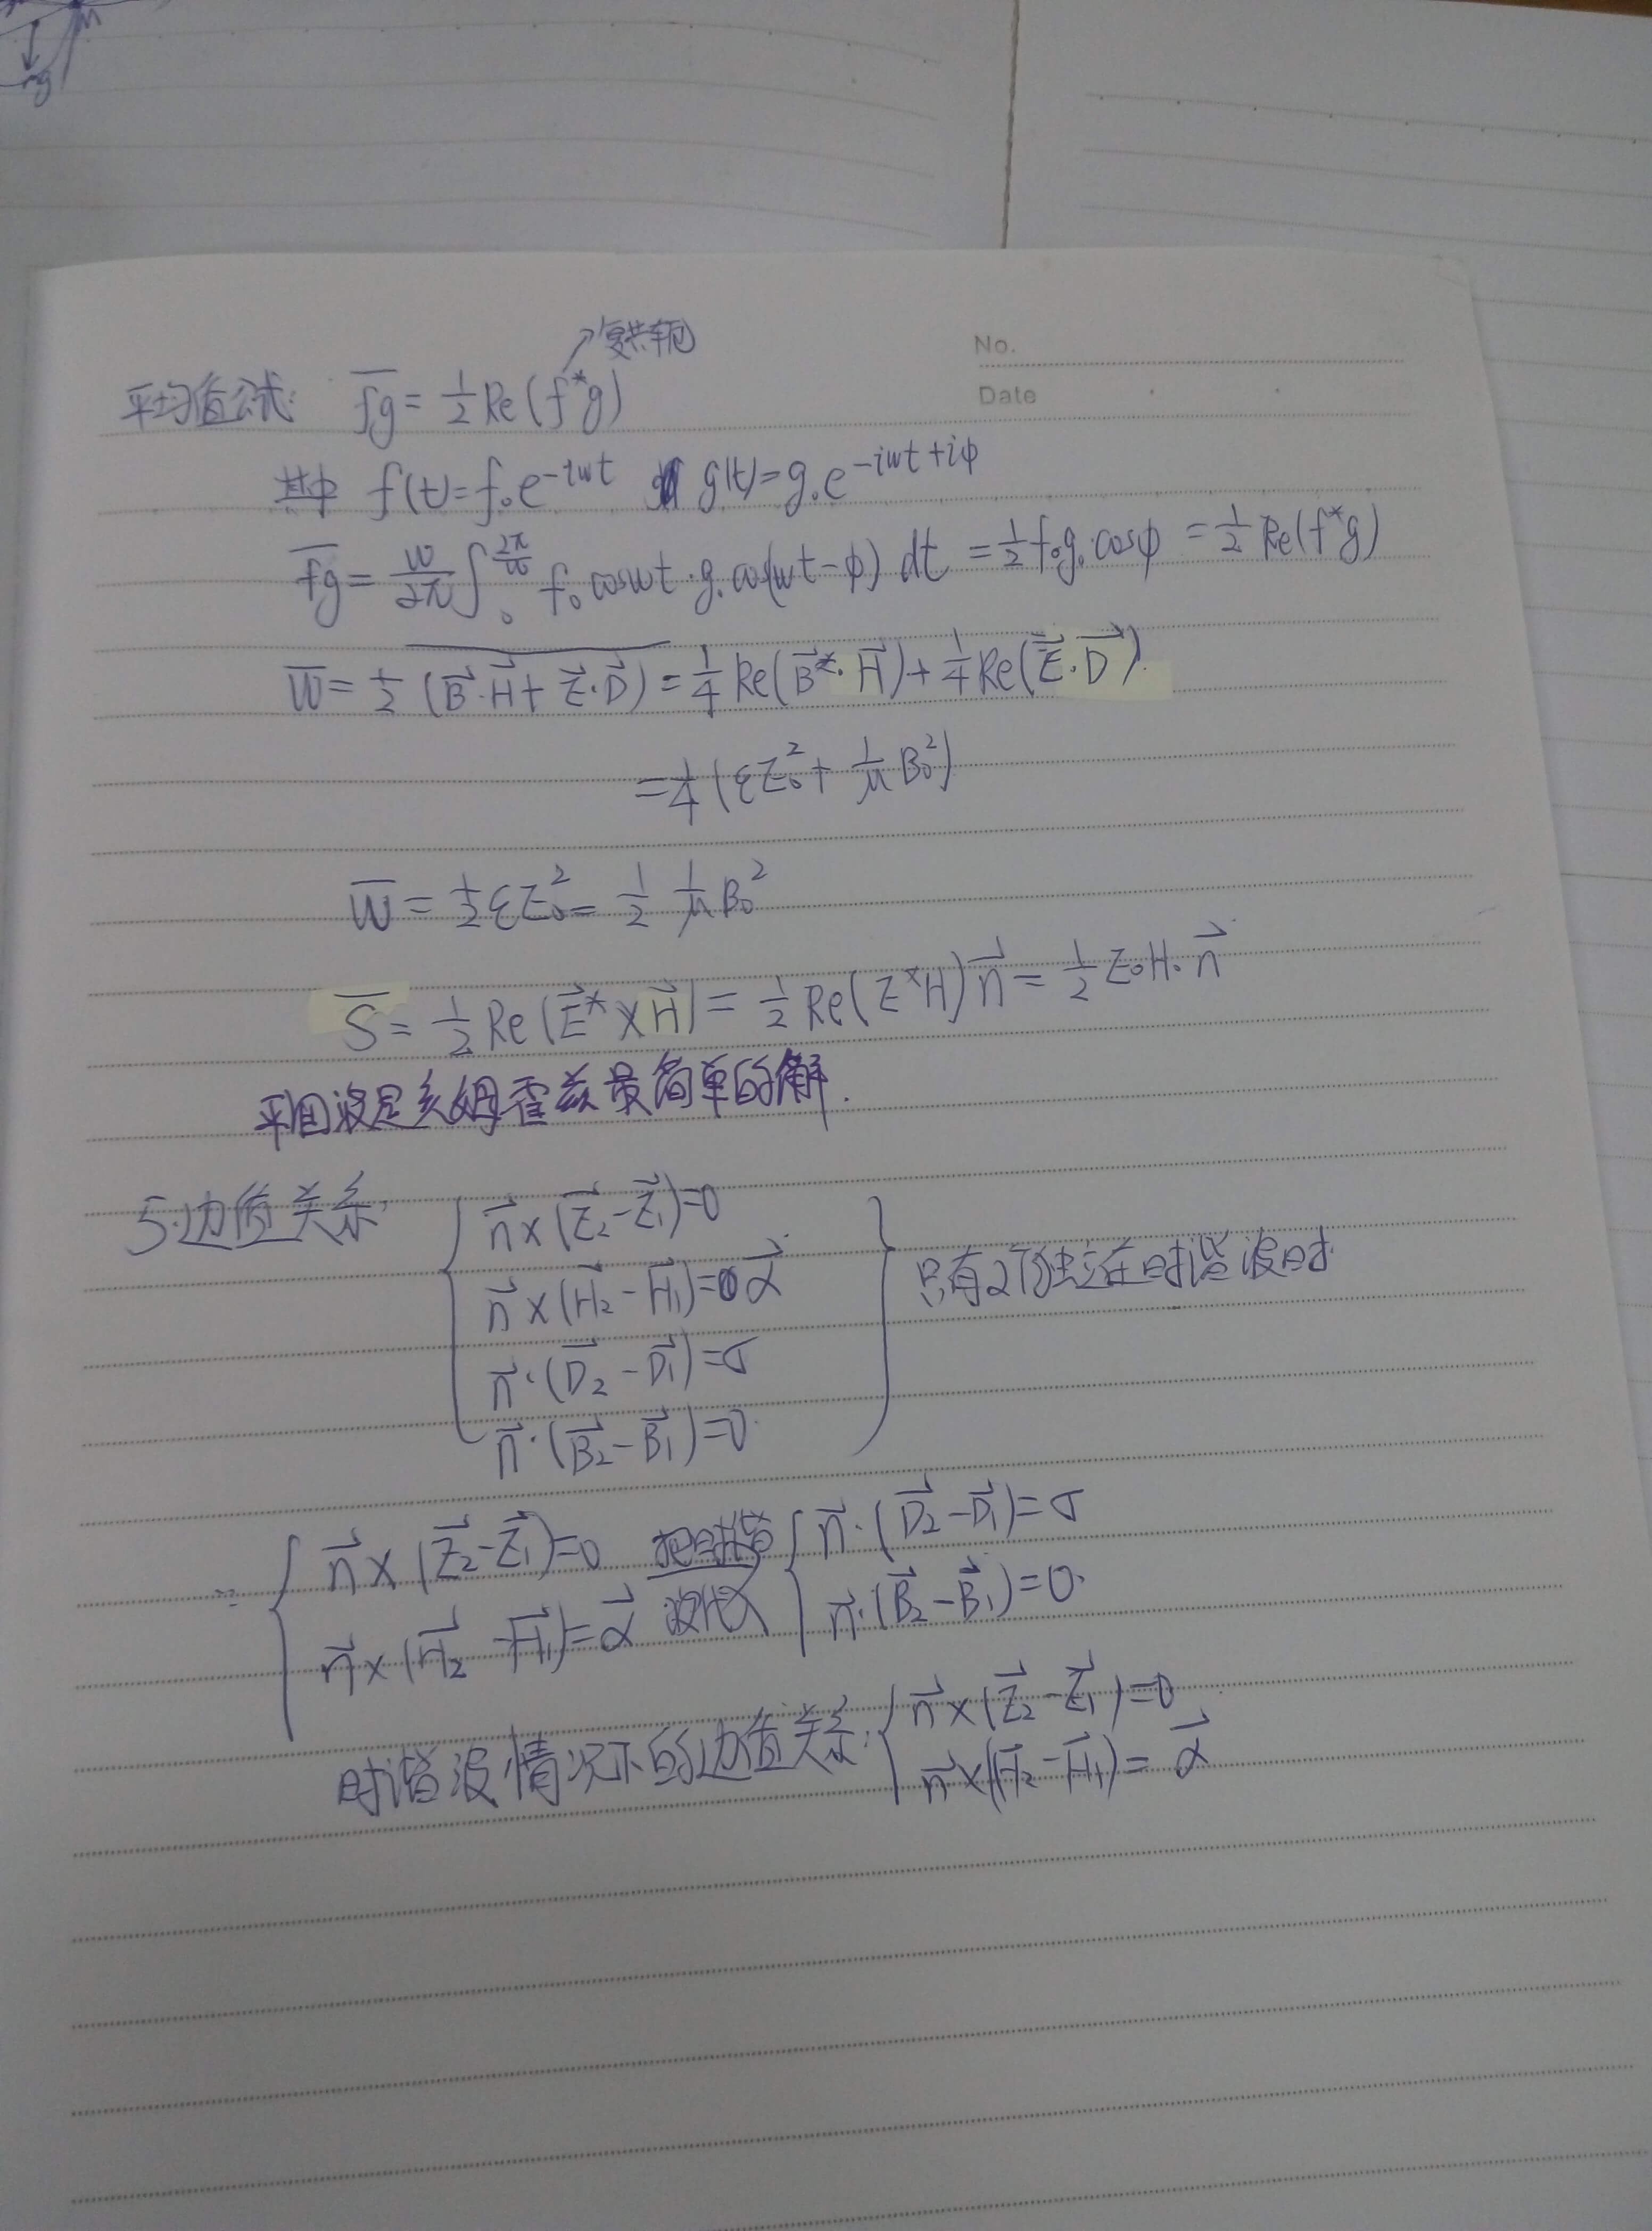 mg
No.
Date
复共轭
平均值公式: \overline{fg} = \frac{1}{2} Re(f^*g)
其中 f(t)=f_0e^{-iωt} g(t)=g_0e^{-iωt+iφ}
\overline{fg} = \frac{ω}{2π}∫_0^{\frac{2π}{ω}} f_0cosωt·g_0cos(ωt-φ) dt = \frac{1}{2}f_0g_0cosφ = \frac{1}{2}Re(f^*g)
\overline{W} = \frac{1}{2} \overline{(\vec{B}·\vec{H}+\vec{E}·\vec{D})} = \frac{1}{4}Re(\vec{B}^*·\vec{H})+\frac{1}{4}Re(\vec{E}·\vec{D}).
= \frac{1}{4}(εE_0^2+\frac{1}{μ}B_0^2)
\overline{W} = \frac{1}{2}εE_0^2 = \frac{1}{2}\frac{1}{μ}B_0^2
\overline{S} = \frac{1}{2}Re(\vec{E}^*×\vec{H}) = \frac{1}{2}Re(E^*H)\vec{n} = \frac{1}{2}E_0H_0\vec{n}
平面波是亥姆霍兹最简单的解.
5.边值关系:
\vec{n}×(\vec{E_2}-\vec{E_1})=0
\vec{n}×(\vec{H_2}-\vec{H_1})=\vec{α}
\vec{n}·(\vec{D_2}-\vec{D_1})=σ
\vec{n}·(\vec{B_2}-\vec{B_1})=0.
只有2个独立在时谐波时
∵ \vec{n}×(\vec{E_2}-\vec{E_1})=0 把时谐 \vec{n}·(\vec{D_2}-\vec{D_1})=σ
\vec{n}×(\vec{H_2}-\vec{H_1})=\vec{α} 波代入 \vec{n}·(\vec{B_2}-\vec{B_1})=0.
时谐波情况下的边值关系: \vec{n}×(\vec{E_2}-\vec{E_1})=0
\vec{n}×(\vec{H_2}-\vec{H_1})=\vec{α}